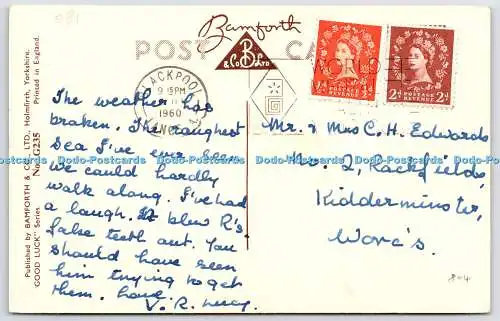 981
Bamforth
POST CA
& Co. B LTD
Published by BAMFORTH & CO., LTD., Holmfirth, Yorkshire.
"GOOD LUCK" Series No. G235 Printed in England.
BLACKPOOL
9 15PM
1960
LANCS
POSTAGE REVENUE
½d
POSTAGE REVENUE
2d 2d
The weather has
broken. The roughest
Sea I've ever been
we could hardly
walk along. I've had
a laugh. It blew R's
false teeth out. You
should have seen
him trying to get
them. Love
V. R.
Mr. & Mrs C. H. Edwards
No. 2, Rackfields,
Kidderminster,
Worc's.
Dodo-Postcards Dodo-Postcards Dodo-Postcards Dodo-Postcards Dodo-Postcards